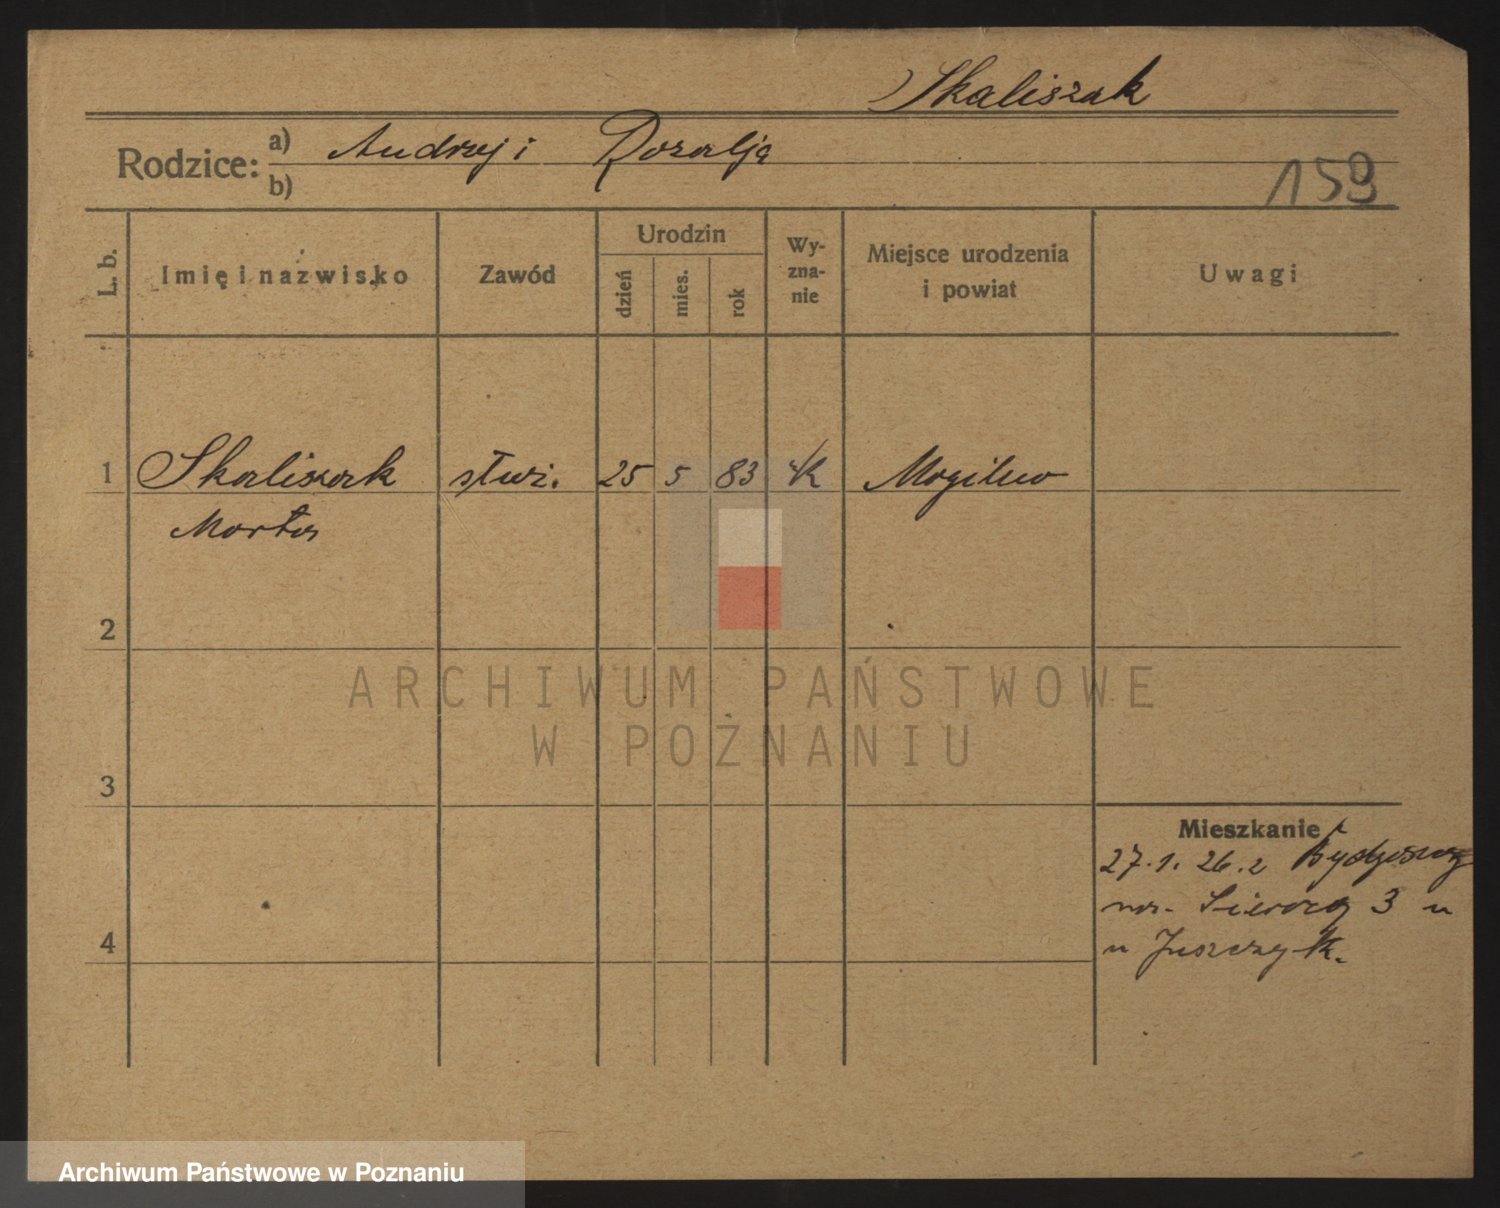 Skaliszak
Rodzice: a) Andrzej i Rozalja
b)
159
L. b.
Imię i nazwisko
Zawód
Urodzin
dzień
mies.
rok
Wy-
zna-
nie
Miejsce urodzenia
i powiat
Uwagi
1 Skaliszak służ. 25 5 83 rk Mogilno
Marta
2
3
4
Mieszkanie
27.1. 26. z Bydgoszczy
na. 3 u
u Juszczyk.
ARCHIWUM PAŃSTWOWE
W POZNANIU
Archiwum Państwowe w Poznaniu